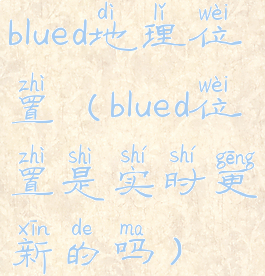 dì lǐ wèi
blued地理位
zhì wèi
置（blued位
zhì shì shí shí gēng
置是实时更
xīn de ma
新的吗）